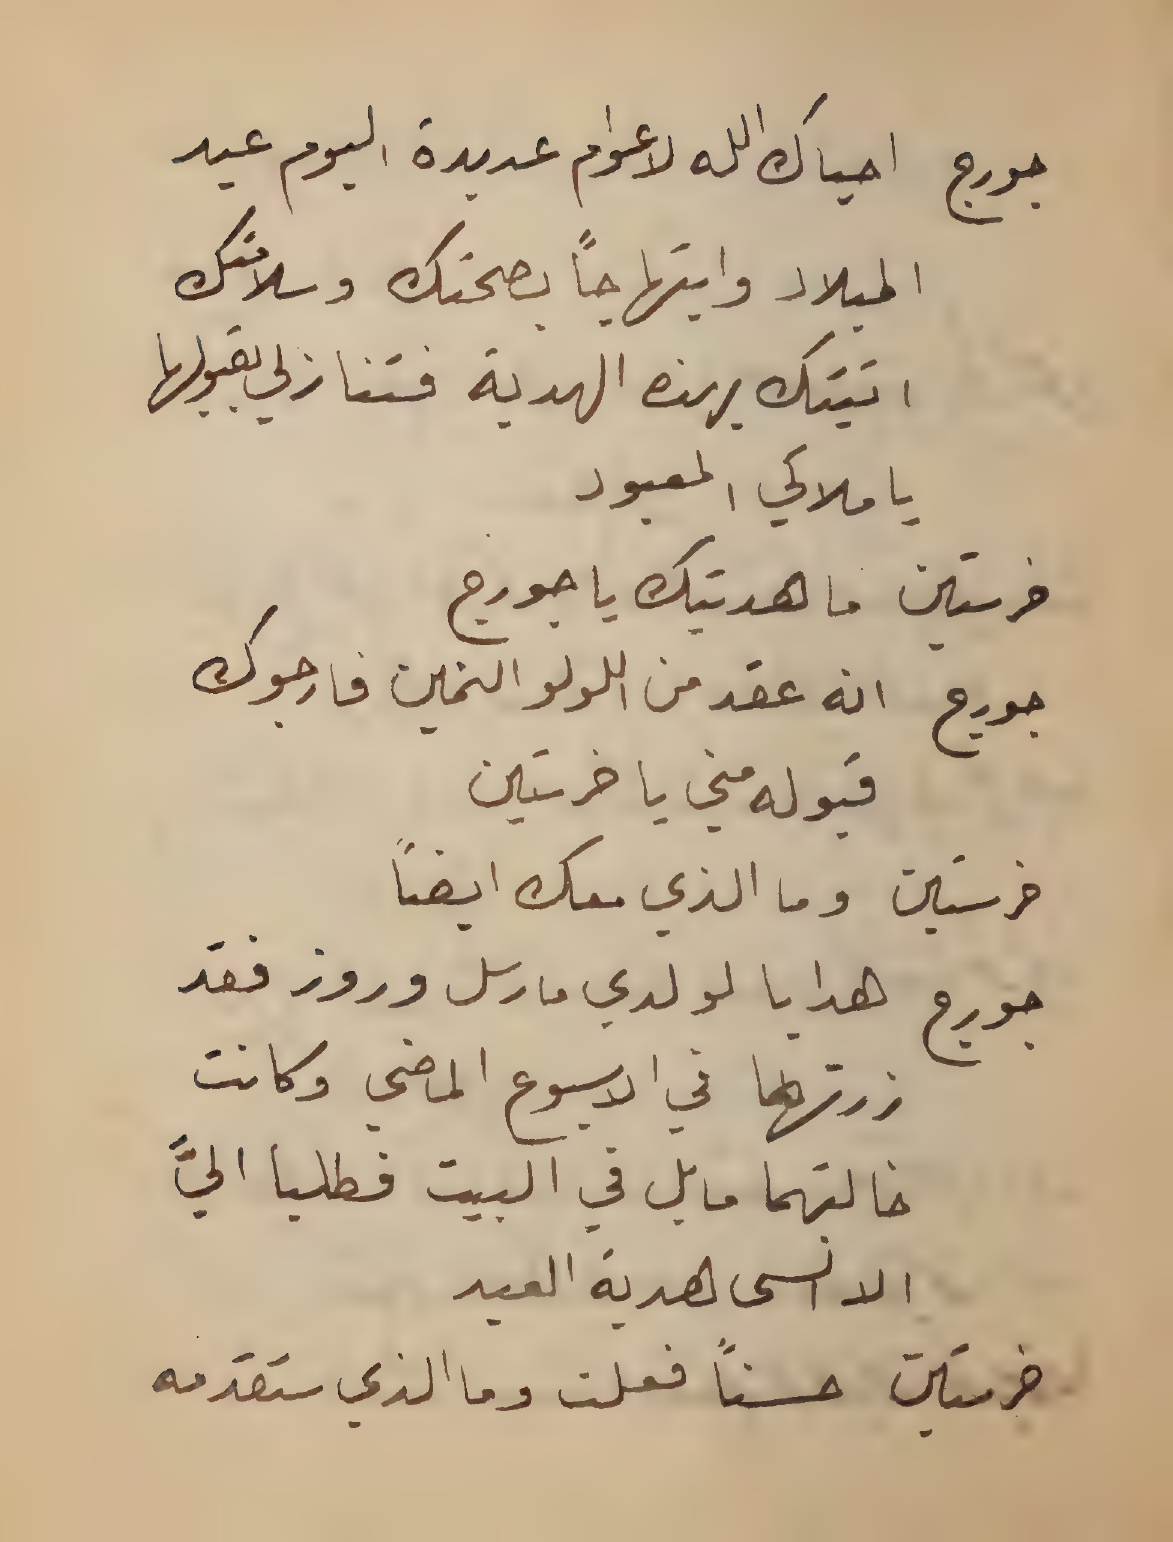 جورج احياك الله لاعوام عديدة اليوم عيد
الميلاد وابتهاجاً بصحتك وسلامتك
اتيتك بهذه الهدية فتنازلي بقبولها
يا ملاكي المعبود
خرستين ما هديتك يا جورج
جورج انه عقد من اللولو الثمين فارجوك
قبوله مني يا خرستين
خرستين وما الذي معك ايضاً
جورج هدايا لولدي مارسل وروز فقد
زرتهما في الاسبوع الماضي وكانت
خالتهما مابل في البيت فطلبا اليَّ
الا انسى هدية العيد
خرستين حسناً فعلت وما الذي ستقدمه